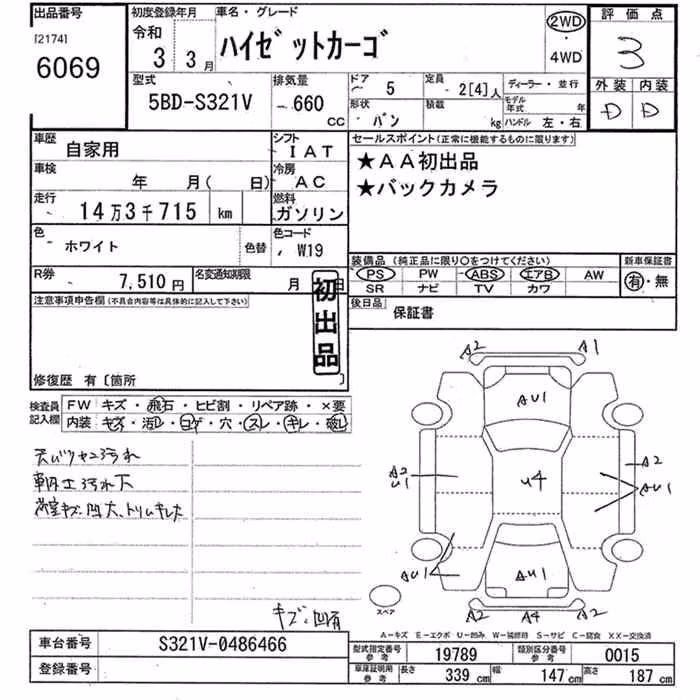 出品番号
[2174]
6069
初度登録年月
令和
3 3月
車名・グレード
ハイゼットカーゴ
2WD
・
4WD
評価点
3
外装 内装
D D
型式
5BD-S321V
排気量
660
CC
ドア 5
定員 2[4]人
ディーラー・並行
形状 バン
積載 kg
モデル年式 年
ハンドル 左・右
車歴 自家用
シフト IAT
車検 年 月( 日)
冷房 AC
走行 14万3千715 km
燃料 ガソリン
色 ホワイト
色替
色コード W19
R券 7,510円
名変通知期限 月 日
セールスポイント(正常に機能するものに限ります)
★AA初出品
★バックカメラ
装備品(純正品に限り○をつけてください)
新車保証書
PS PW ABS エアB AW
SR ナビ TV カワ
有・無
後日品 保証書
注意事項申告欄(不具合内容等は具体的に記入して下さい)
初出品
修復歴 有〔箇所 〕
検査員記入欄
FW キズ・飛石・ヒビ割・リペア跡・×要
内装 キズ・汚レ・コゲ・穴・スレ・キレ・破レ
車内士汚れ下
荷室キズ凹大、トリムキレ大
キズ、凹有
A2 A1
AU1
A2
U1
U4
A2
AU1
AU1
AU1
A2 A4 A2
スペア
A-キズ E-エクボ U-凹み W-補修跡 S-サビ C-腐食 XX-交換済
車台番号 S321V-0486466
登録番号
型式指定番号 参考 19789
類別区分番号 参考 0015
車庫証明用 参考 長さ 339 cm 幅 147 cm 高さ 187 cm